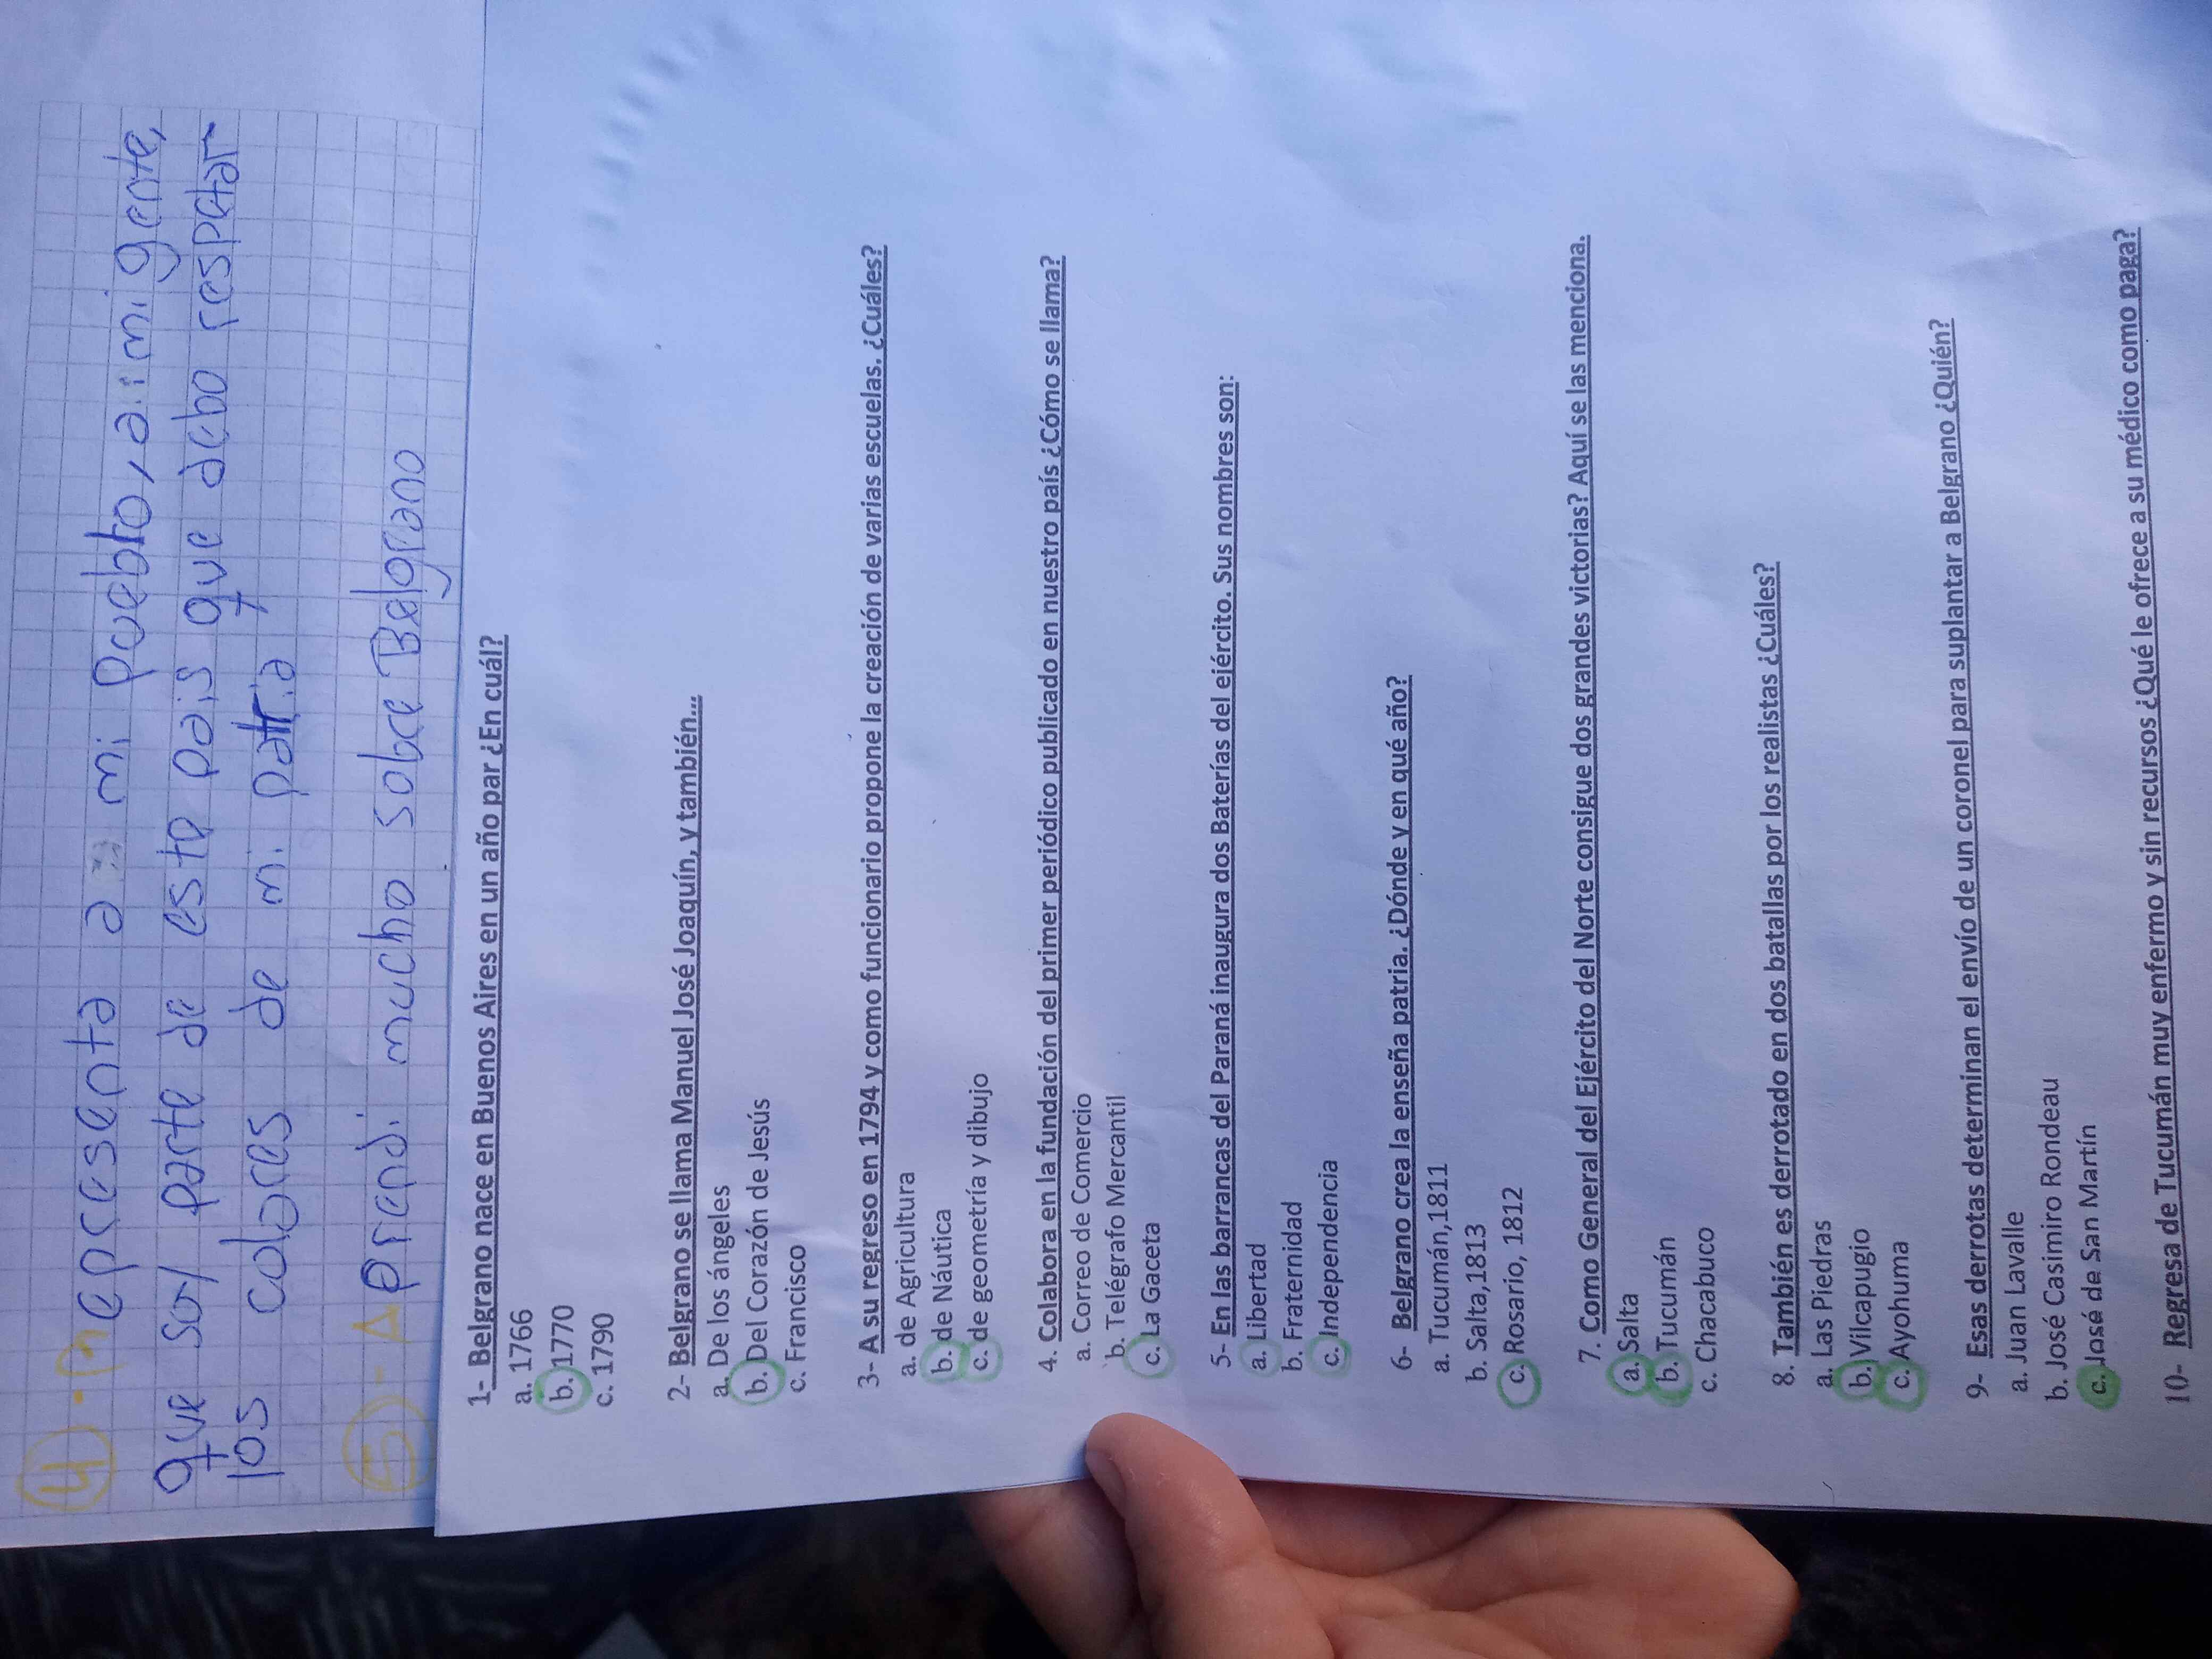 4). Representa a mi pueblo, a mi gente,
que soy parte de este pais que debo respetar
los colores de mi patria
5)- Aprendi mucho sobre Belgrano
1- Belgrano nace en Buenos Aires en un año par ¿En cuál?
a. 1766
b. 1770
c. 1790
2- Belgrano se llama Manuel José Joaquín, y también...
a. De los ángeles
b. Del Corazón de Jesús
c. Francisco
3- A su regreso en 1794 y como funcionario propone la creación de varias escuelas. ¿Cuáles?
a. de Agricultura
b. de Náutica
c. de geometría y dibujo
4. Colabora en la fundación del primer periódico publicado en nuestro país ¿Cómo se llama?
a. Correo de Comercio
b. Telégrafo Mercantil
c. La Gaceta
5- En las barrancas del Paraná inaugura dos Baterías del ejército. Sus nombres son:
a. Libertad
b. Fraternidad
c. Independencia
6- Belgrano crea la enseña patria. ¿Dónde y en qué año?
a. Tucumán,1811
b. Salta,1813
c. Rosario, 1812
7. Como General del Ejército del Norte consigue dos grandes victorias? Aquí se las menciona.
a. Salta
b. Tucumán
c. Chacabuco
8. También es derrotado en dos batallas por los realistas ¿Cuáles?
a. Las Piedras
b. Vilcapugio
c. Ayohuma
9- Esas derrotas determinan el envío de un coronel para suplantar a Belgrano ¿Quién?
a. Juan Lavalle
b. José Casimiro Rondeau
c. José de San Martín
10- Regresa de Tucumán muy enfermo y sin recursos ¿Qué le ofrece a su médico como paga?